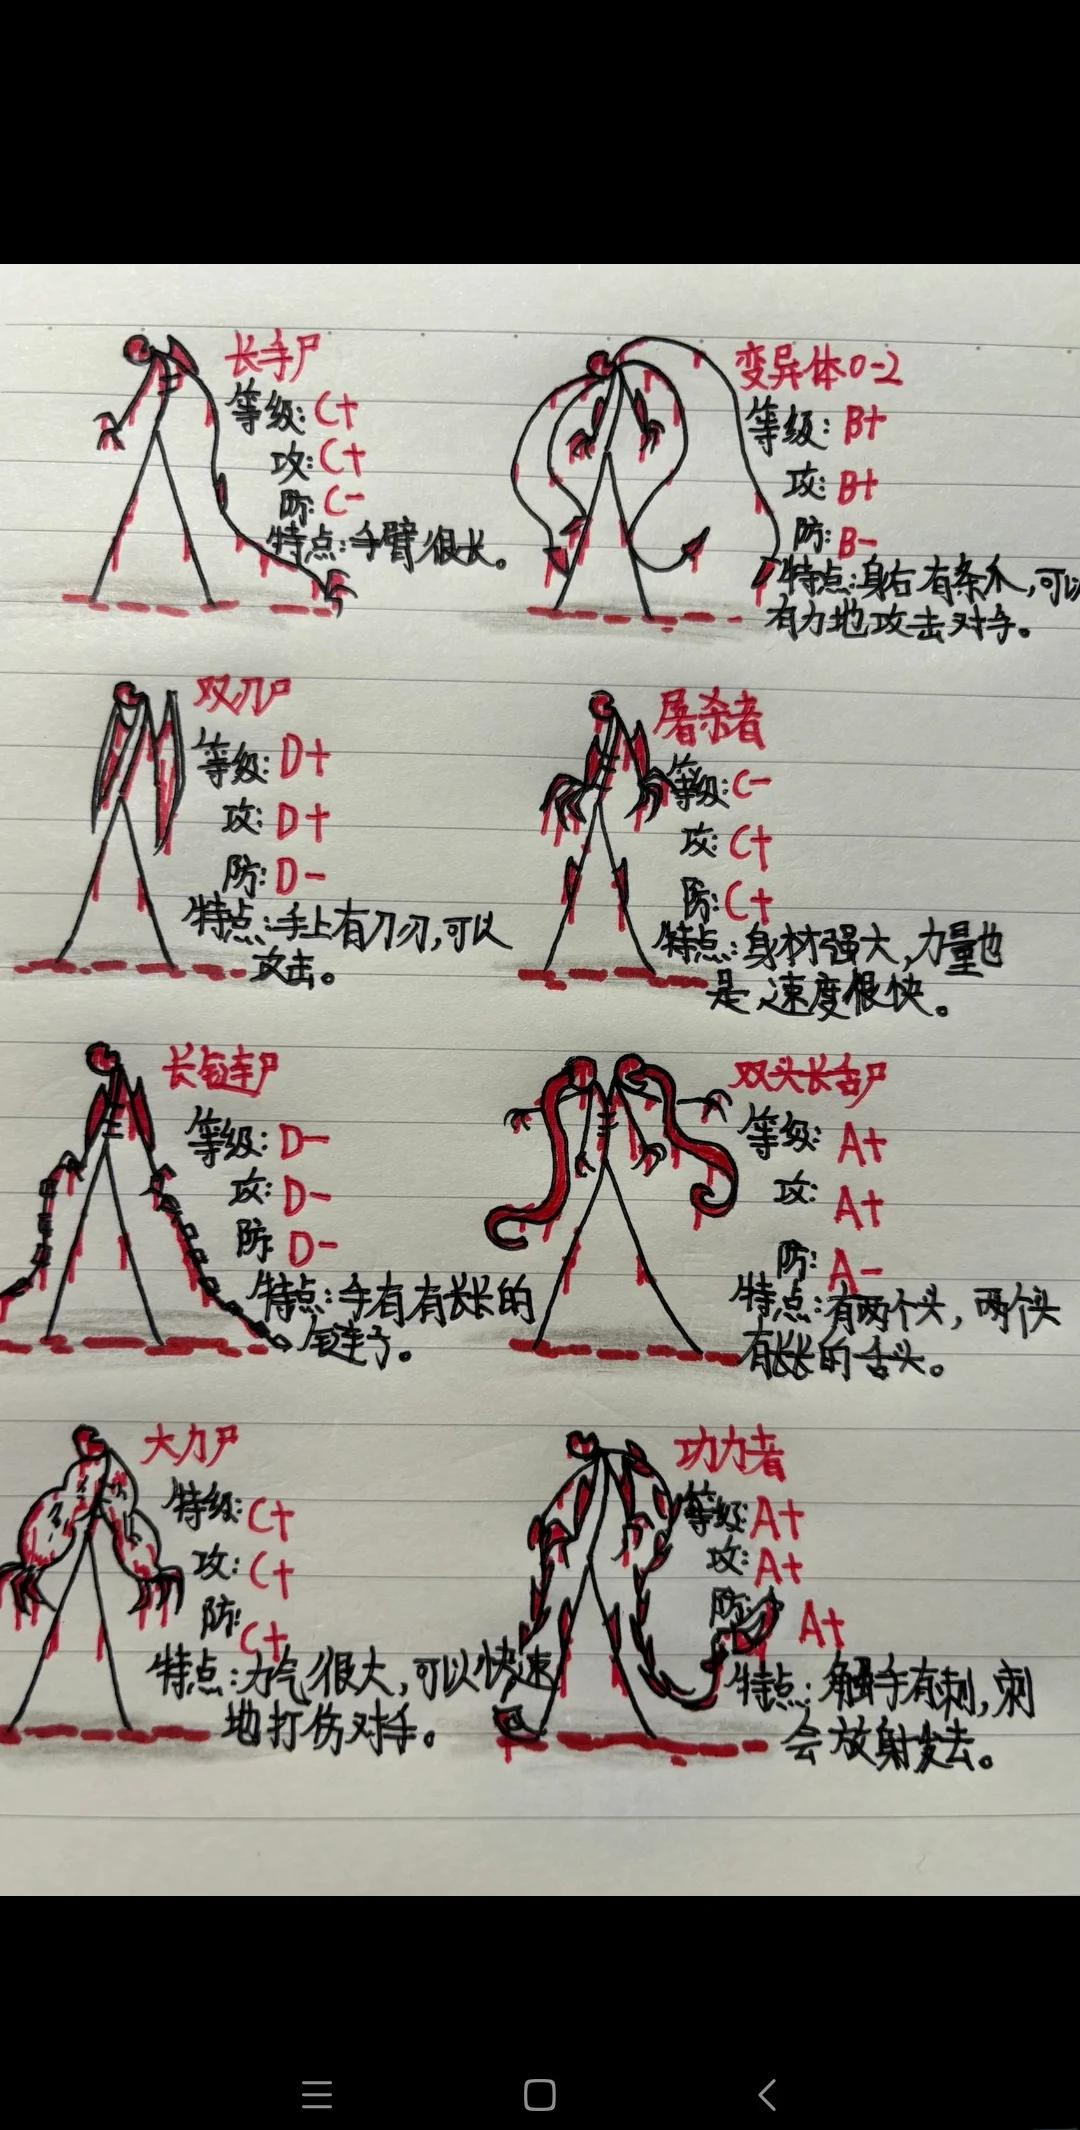 长手尸
等级：C+
攻：C+
防：C-
特点：手臂很长。
变异体0-2
等级：B+
攻：B+
防：B-
特点：身右有条爪，可以
有力地攻击对手。
双刀尸
等级：D+
攻：D+
防：D-
特点：手上有刀刃，可以
攻击。
屠杀者
等级：C-
攻：C+
防：C+
特点：身材强大，力量也
是，速度很快。
长链尸
等级：D-
攻：D-
防：D-
特点：手有有长长的
链子。
双头长舌尸
等级：A+
攻：A+
防：A-
特点：有两个头，两个头
有长长的舌头。
大力尸
特级：C+
攻：C+
防：C+
特点：力气很大，可以快速
地打伤对手。
功力者
等级：A+
攻：A+
防：A+
特点：触手有刺，刺
会放射发去。